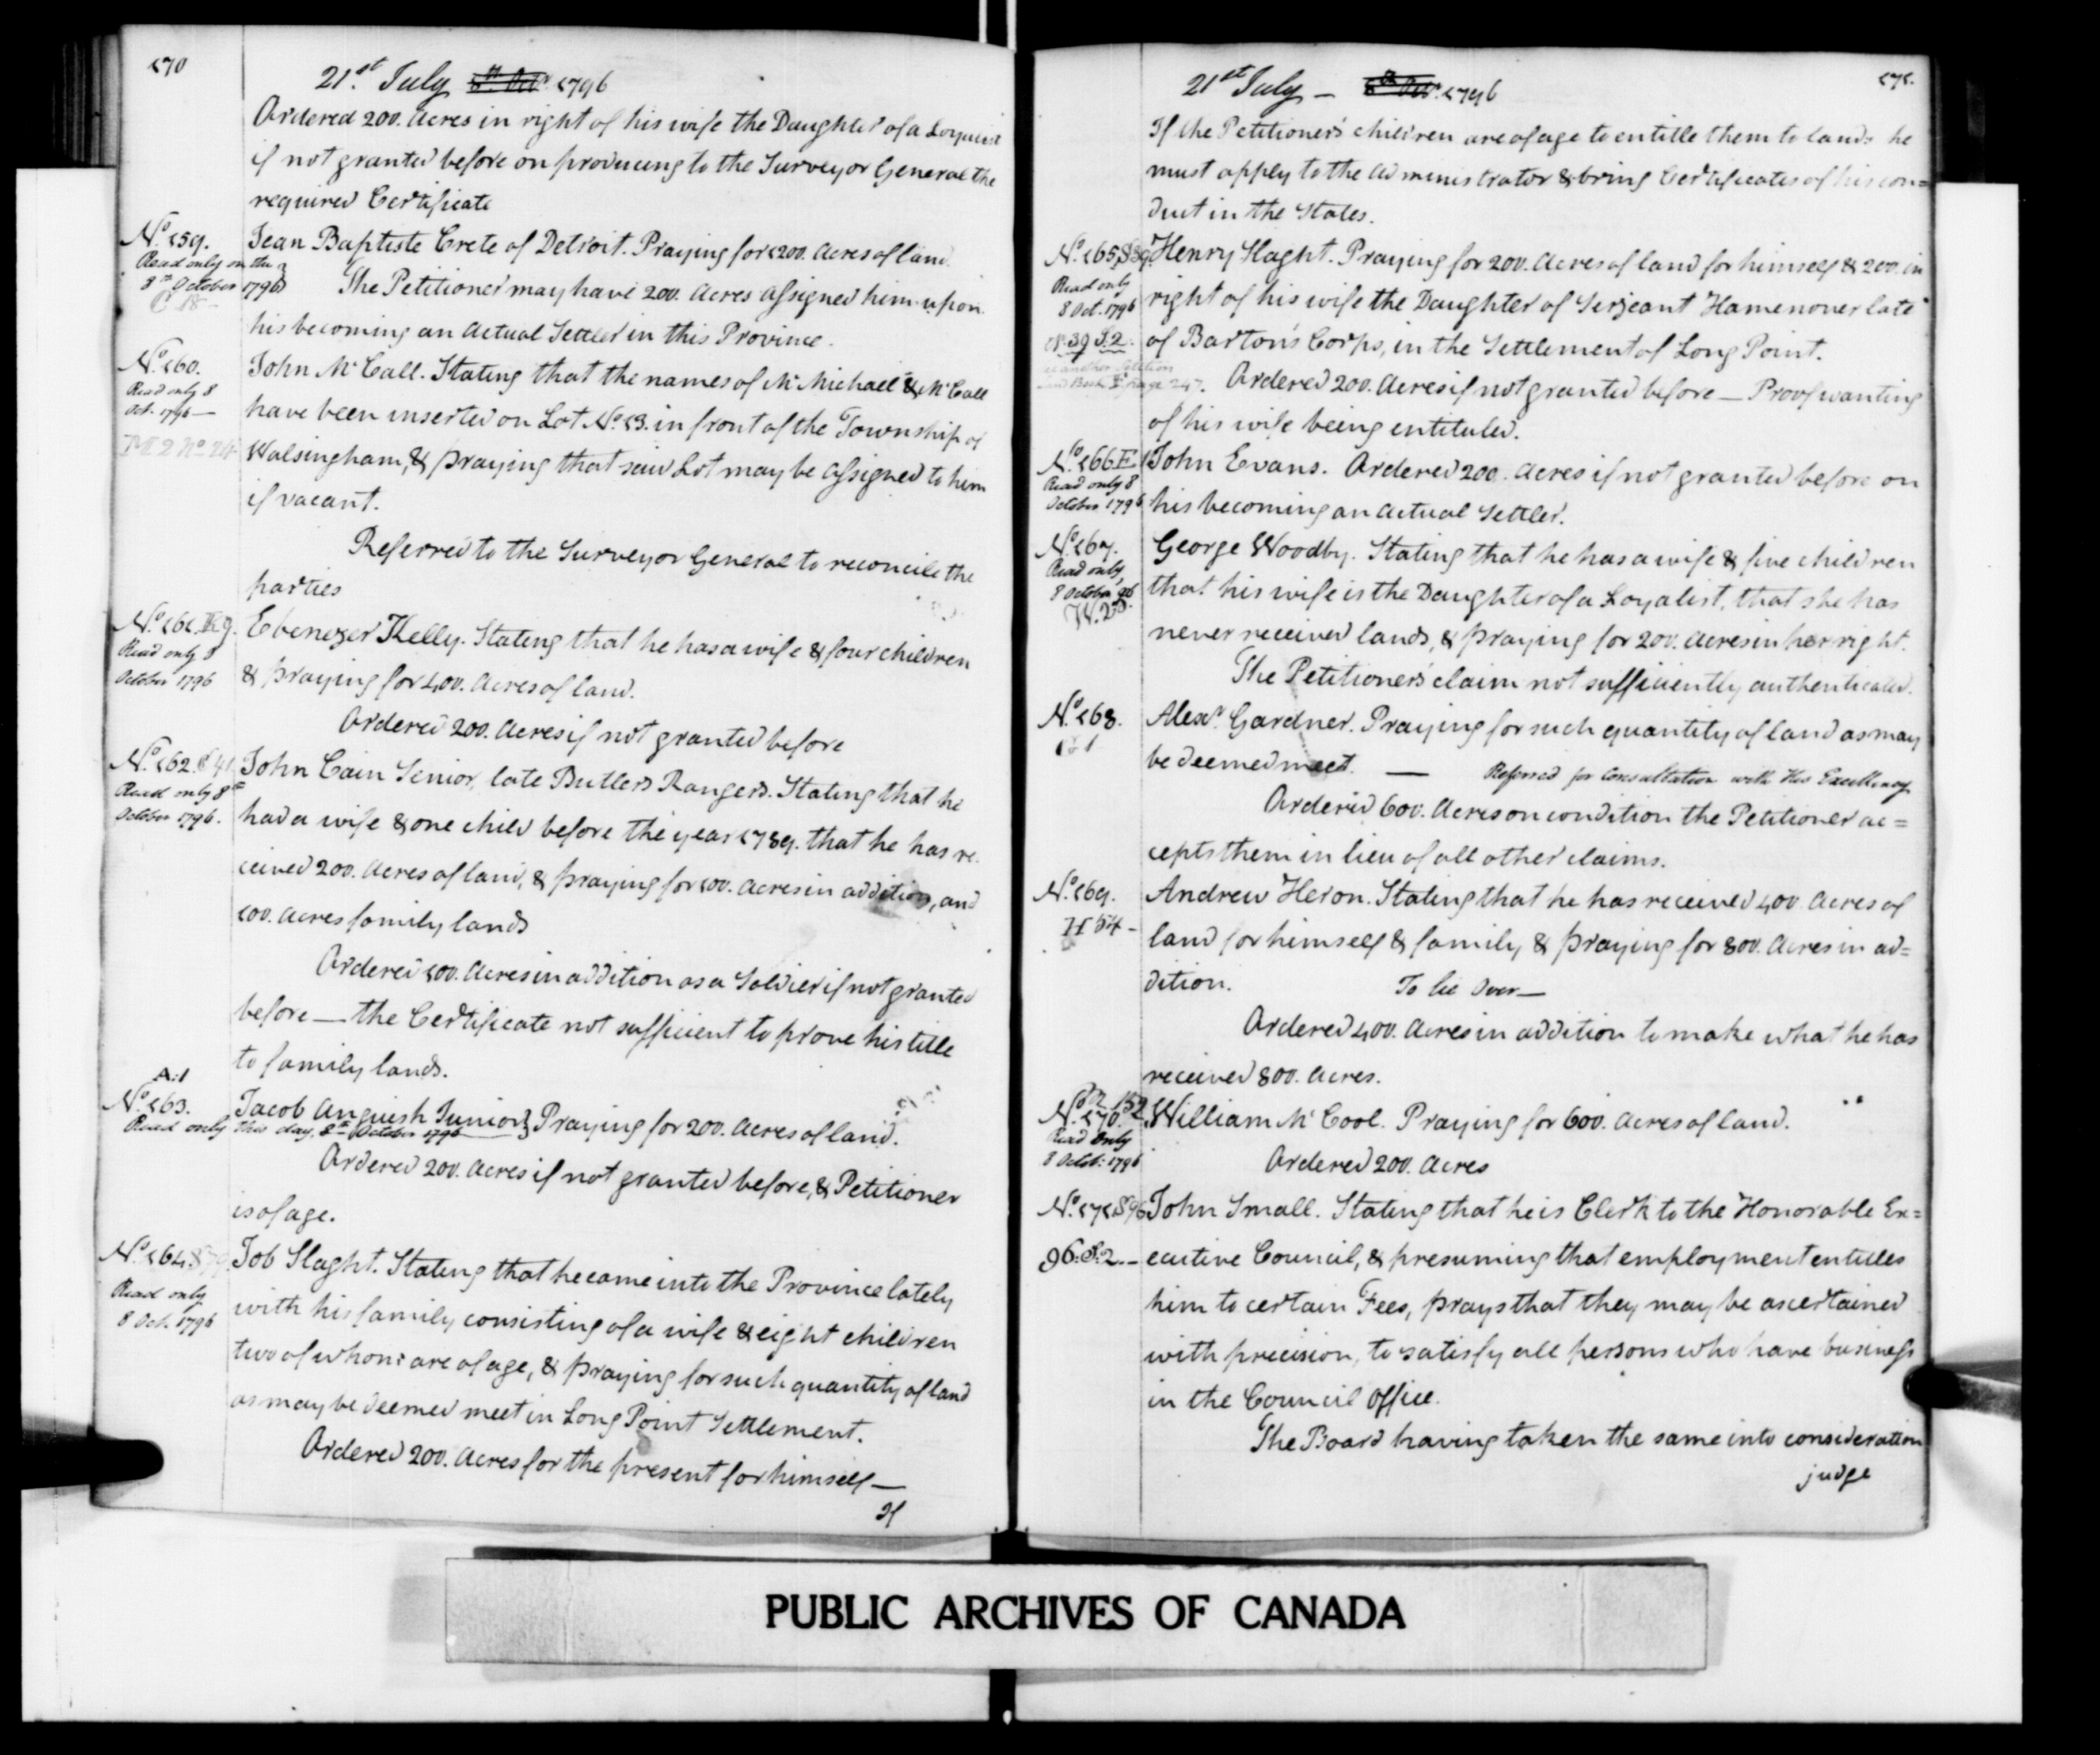 170
21st July 8th Octr 1796
Ordered 200. Acres in right of his wife the Daughter of a Loyalist
if not granted before on producing to the Surveyor General the
required Certificate
No. 159.
Read only on the
8th October 1796
C 18
Jean Baptiste Crete of Detroit. Praying for 1200. Acres of land.
The Petitioner may have 200. Acres assigned him upon
his becoming an Actual Settler in this Province.
No. 160.
Read only 8
Oct. 1796—
M 2 No 24
John McCall. Stating that the names of McMichael & McCall
have been inserted on Lot No. 13. in front of the Township of
Walsingham, & praying that said Lot may be assigned to him
if vacant.
Referred to the Surveyor General to reconcile the
parties
No. 161. K9.
Read only 8
October 1796
Ebenezer Kelly. Stating that he has a wife & four children
& praying for 400. Acres of land.
Ordered 200. Acres if not granted before
No. 162. C 41
Read only 8th
October 1796.
John Cain Senior, late Butlers Rangers. Stating that he
had a wife & one child before the year 1789. that he has re-
ceived 200. Acres of land, & praying for 100. Acres in addition, and
100. Acres family lands
Ordered 100. Acres in addition as a Soldier if not granted
before — the Certificate not sufficient to prove his title
to family lands.
A:1
No. 163.
Jacob Anguish Junior} Praying for 200. Acres of land.
Read only this day, 8th October 1796
Ordered 200. Acres if not granted before, & Petitioner
is of age.
No. 164.
Read only
8 Oct. 1796
Job Slaght. Stating that he came into the Province lately
with his family consisting of a wife & eight children
two of whom are of age, & praying for such quantity of land
as may be deemed meet in Long Point Settlement.
Ordered 200. Acres for the present for himself —
If
171.
21st July — 8th Octr. 1796
If the Petitioner's children are of age to entitle them to lands he
must apply to the Administrator & bring Certificates of his con=
duct in the States.
No. 165. S39.
Read only
8 Oct. 1796
No. 39 S.2.
Henry Slaght. Praying for 200. Acres of land for himself & 200. in
right of his wife the Daughter of Serjeant Hamenover late
of Barton's Corps, in the Settlement of Long Point.
another Petition
page 247.
Ordered 200. Acres if not granted before — Proof wanting
of his wife being entituled.
No. 166. E1
Read only 8
October 1796
John Evans. Ordered 200. Acres if not granted before on
his becoming an actual Settler.
No. 167.
Read only
8 October 96
W. 28.
George Woodby. Stating that he has a wife & five children
that his wife is the Daughter of a Loyalist, that she has
never received lands, & praying for 200. Acres in her right.
The Petitioner's claim not sufficiently authenticated.
No. 168.
Alexr. Gardner. Praying for such quantity of land as may
be deemed meet. — Referred for Consultation with His Excellency
Ordered 600. Acres on condition the Petitioner ac=
cepts them in lieu of all other claims.
No. 169.
H 54 -
Andrew Heron. Stating that he has received 400. Acres of
land for himself & family & praying for 800. Acres in ad=
dition. To lie Over —
Ordered 400. Acres in addition to make what he has
received 800. Acres.
No. 170.
Read Only
8 Octob: 1796
William McCool. Praying for 600. Acres of land.
Ordered 200. Acres
No. 171. S96
96. S. 2 -
John Small. Stating that he is Clerk to the Honorable Ex=
ecutive Council, & presuming that employment entitles
him to certain Fees, prays that they may be ascertained
with precision, to satisfy all persons who have business
in the Council Office.
The Board having taken the same into consideration
judge
PUBLIC ARCHIVES OF CANADA